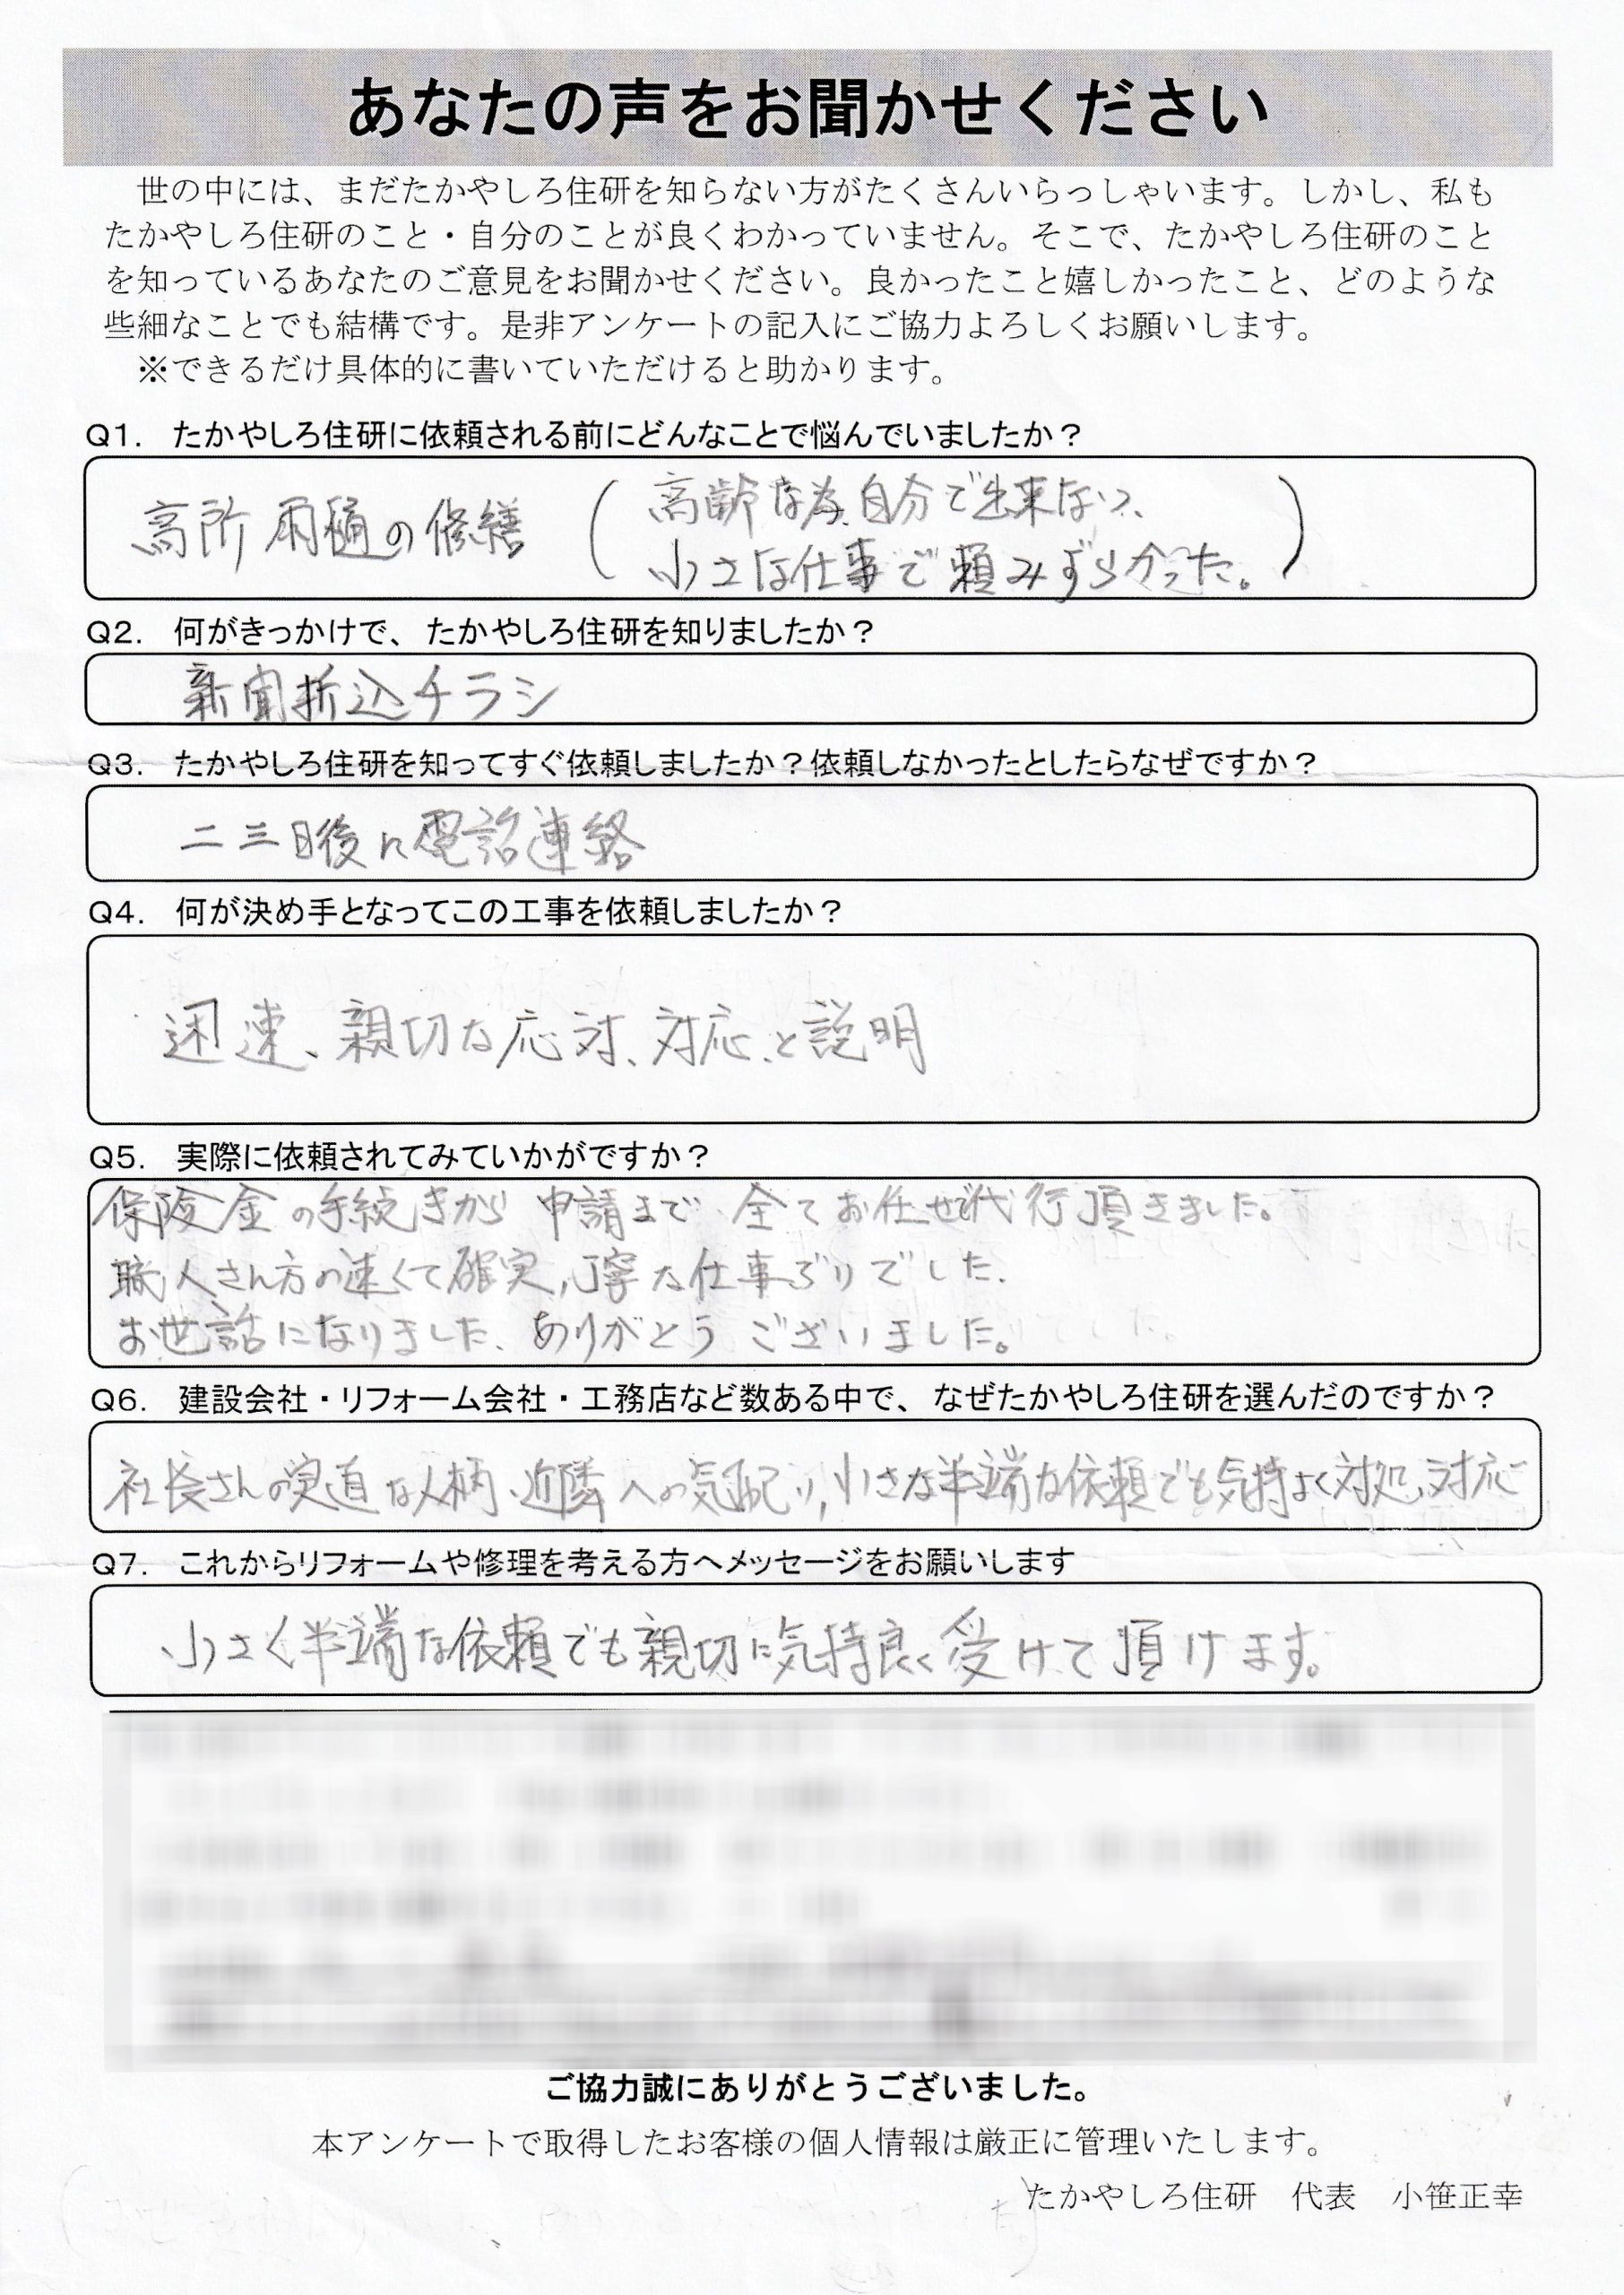 あなたの声をお聞かせください
世の中には、まだたかやしろ住研を知らない方がたくさんいらっしゃいます。しかし、私も
たかやしろ住研のこと・自分のことが良くわかっていません。そこで、たかやしろ住研のこと
を知っているあなたのご意見をお聞かせください。良かったこと嬉しかったこと、どのような
些細なことでも結構です。是非アンケートの記入にご協力よろしくお願いします。
※できるだけ具体的に書いていただけると助かります。
Q1. たかやしろ住研に依頼される前にどんなことで悩んでいましたか?
高所雨樋の修繕 (高齢な為、自分で出来ない、
小さな仕事で頼みずらかった。)
Q2. 何がきっかけで、たかやしろ住研を知りましたか?
新聞折込チラシ
Q3. たかやしろ住研を知ってすぐ依頼しましたか?依頼しなかったとしたらなぜですか?
二三日後に電話連絡
Q4. 何が決め手となってこの工事を依頼しましたか?
迅速、親切な応対、対応、と説明
Q5. 実際に依頼されてみていかがですか?
保険金の手続きから 申請まで、全てお任せで代行頂きました。
職人さん方の速くて確実,丁寧な仕事ぶりでした、
お世話になりました、ありがとうございました。
Q6. 建設会社・リフォーム会社・工務店など数ある中で、なぜたかやしろ住研を選んだのですか?
社長さんの実直な人柄、近隣への気配り,小さな半端な依頼でも気持よく対処、対応
Q7. これからリフォームや修理を考える方へメッセージをお願いします
小さく半端な依頼でも親切に気持良く受けて頂けます。
ご協力誠にありがとうございました。
本アンケートで取得したお客様の個人情報は厳正に管理いたします。
たかやしろ住研 代表 小笹正幸